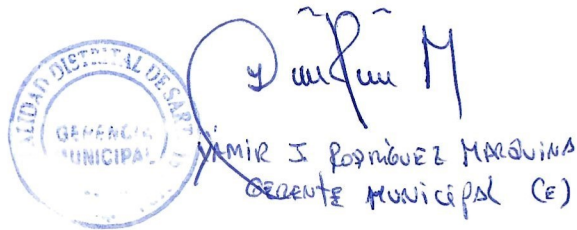 ALIDAD DISTRITAL DE SART
GERENCIA
MUNICIPAL
YAMIR J. RODRÍGUEZ MARQUINA
GERENTE MUNICIPAL (E)